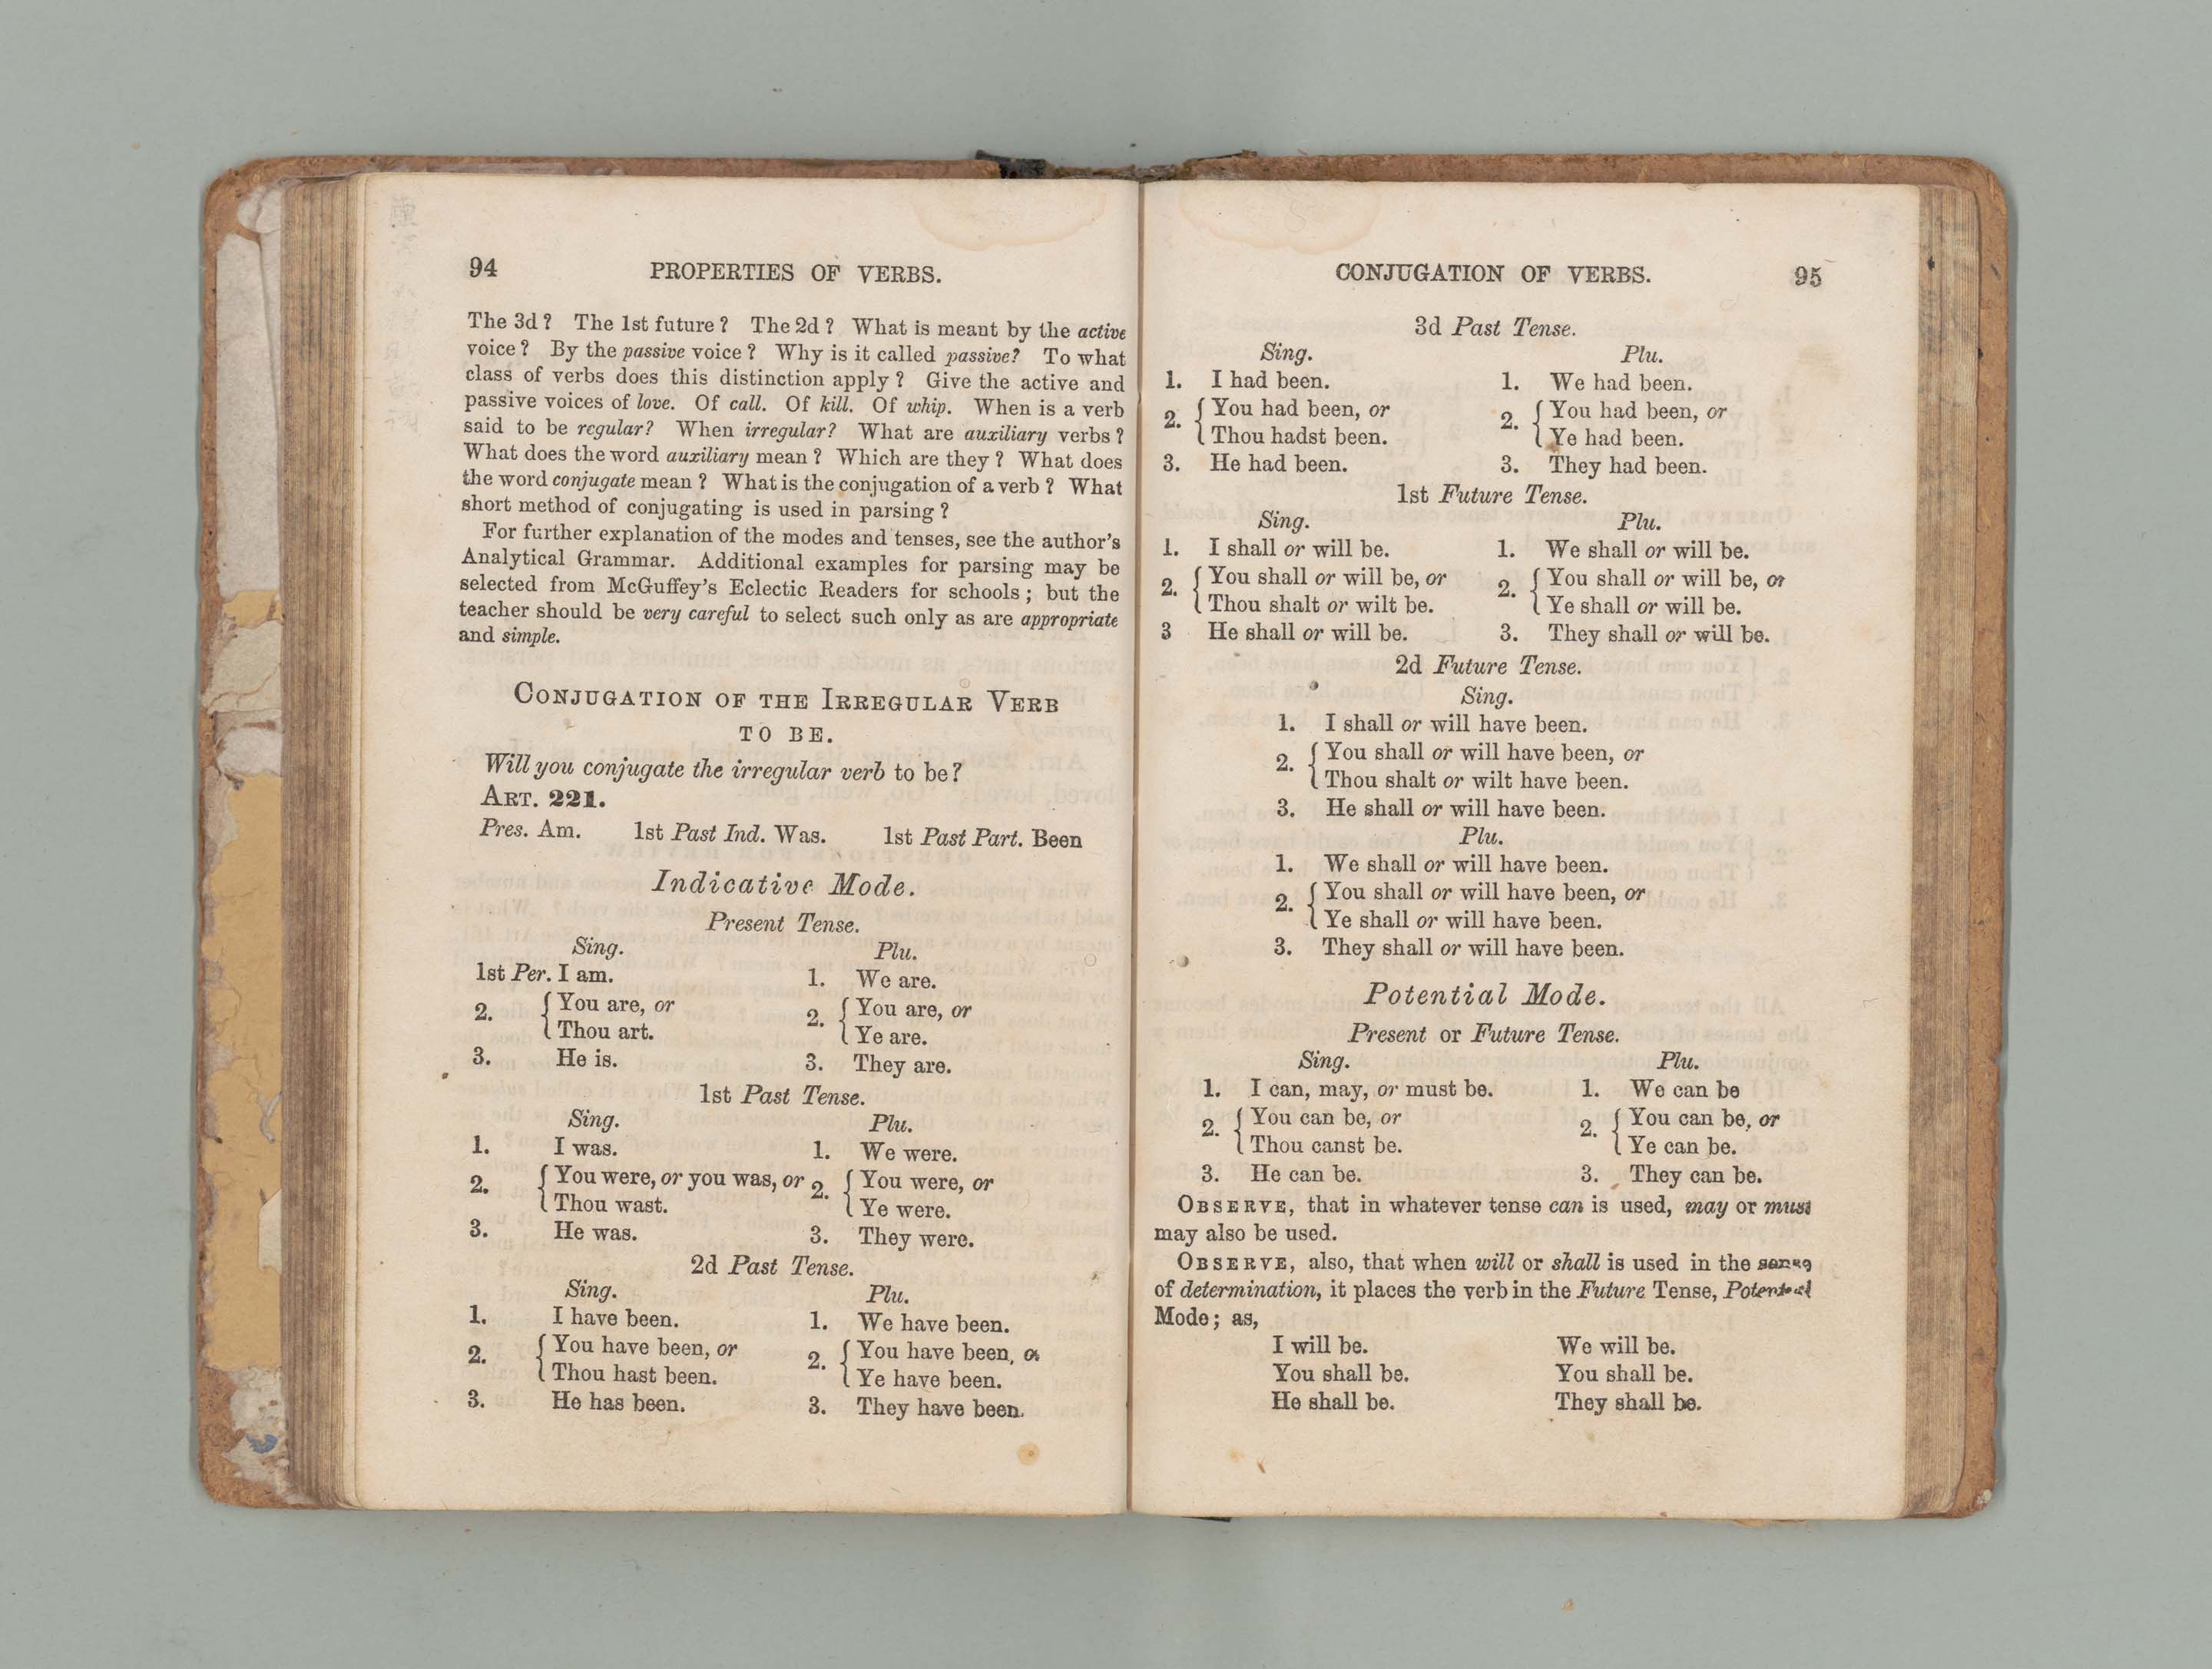 94 PROPERTIES OF VERBS.
The 3d? The 1st future? The 2d? What is meant by the active
voice? By the passive voice? Why is it called passive? To what
class of verbs does this distinction apply? Give the active and
passive voices of love. Of call. Of kill. Of whip. When is a verb
said to be regular? When irregular? What are auxiliary verbs?
What does the word auxiliary mean? Which are they? What does
the word conjugate mean? What is the conjugation of a verb? What
short method of conjugating is used in parsing?
For further explanation of the modes and tenses, see the author's
Analytical Grammar. Additional examples for parsing may be
selected from McGuffey's Eclectic Readers for schools; but the
teacher should be very careful to select such only as are appropriate
and simple.
CONJUGATION OF THE IRREGULAR VERB
TO BE.
Will you conjugate the irregular verb to be?
ART. 221.
Pres. Am. 1st Past Ind. Was. 1st Past Part. Been
Indicative Mode.
Present Tense.
Sing. Plu.
1st Per. I am. 1. We are.
2. { You are, or 2. { You are, or
Thou art. Ye are.
3. He is. 3. They are.
1st Past Tense.
Sing. Plu.
1. I was. 1. We were.
2. { You were, or you was, or 2. { You were, or
Thou wast. Ye were.
3. He was. 3. They were.
2d Past Tense.
Sing. Plu.
1. I have been. 1. We have been.
2. { You have been, or 2. { You have been, or
Thou hast been. Ye have been.
3. He has been. 3. They have been.
CONJUGATION OF VERBS. 95
3d Past Tense.
Sing. Plu.
1. I had been. 1. We had been.
2. { You had been, or 2. { You had been, or
Thou hadst been. Ye had been.
3. He had been. 3. They had been.
1st Future Tense.
Sing. Plu.
1. I shall or will be. 1. We shall or will be.
2. { You shall or will be, or 2. { You shall or will be, or
Thou shalt or wilt be. Ye shall or will be.
3 He shall or will be. 3. They shall or will be.
2d Future Tense.
Sing.
1. I shall or will have been.
2. { You shall or will have been, or
Thou shalt or wilt have been.
3. He shall or will have been.
Plu.
1. We shall or will have been.
2. { You shall or will have been, or
Ye shall or will have been.
3. They shall or will have been.
Potential Mode.
Present or Future Tense.
Sing. Plu.
1. I can, may, or must be. 1. We can be
2. { You can be, or 2. { You can be, or
Thou canst be. Ye can be.
3. He can be. 3. They can be.
OBSERVE, that in whatever tense can is used, may or must
may also be used.
OBSERVE, also, that when will or shall is used in the sense
of determination, it places the verb in the Future Tense, Potential
Mode; as,
I will be. We will be.
You shall be. You shall be.
He shall be. They shall be.